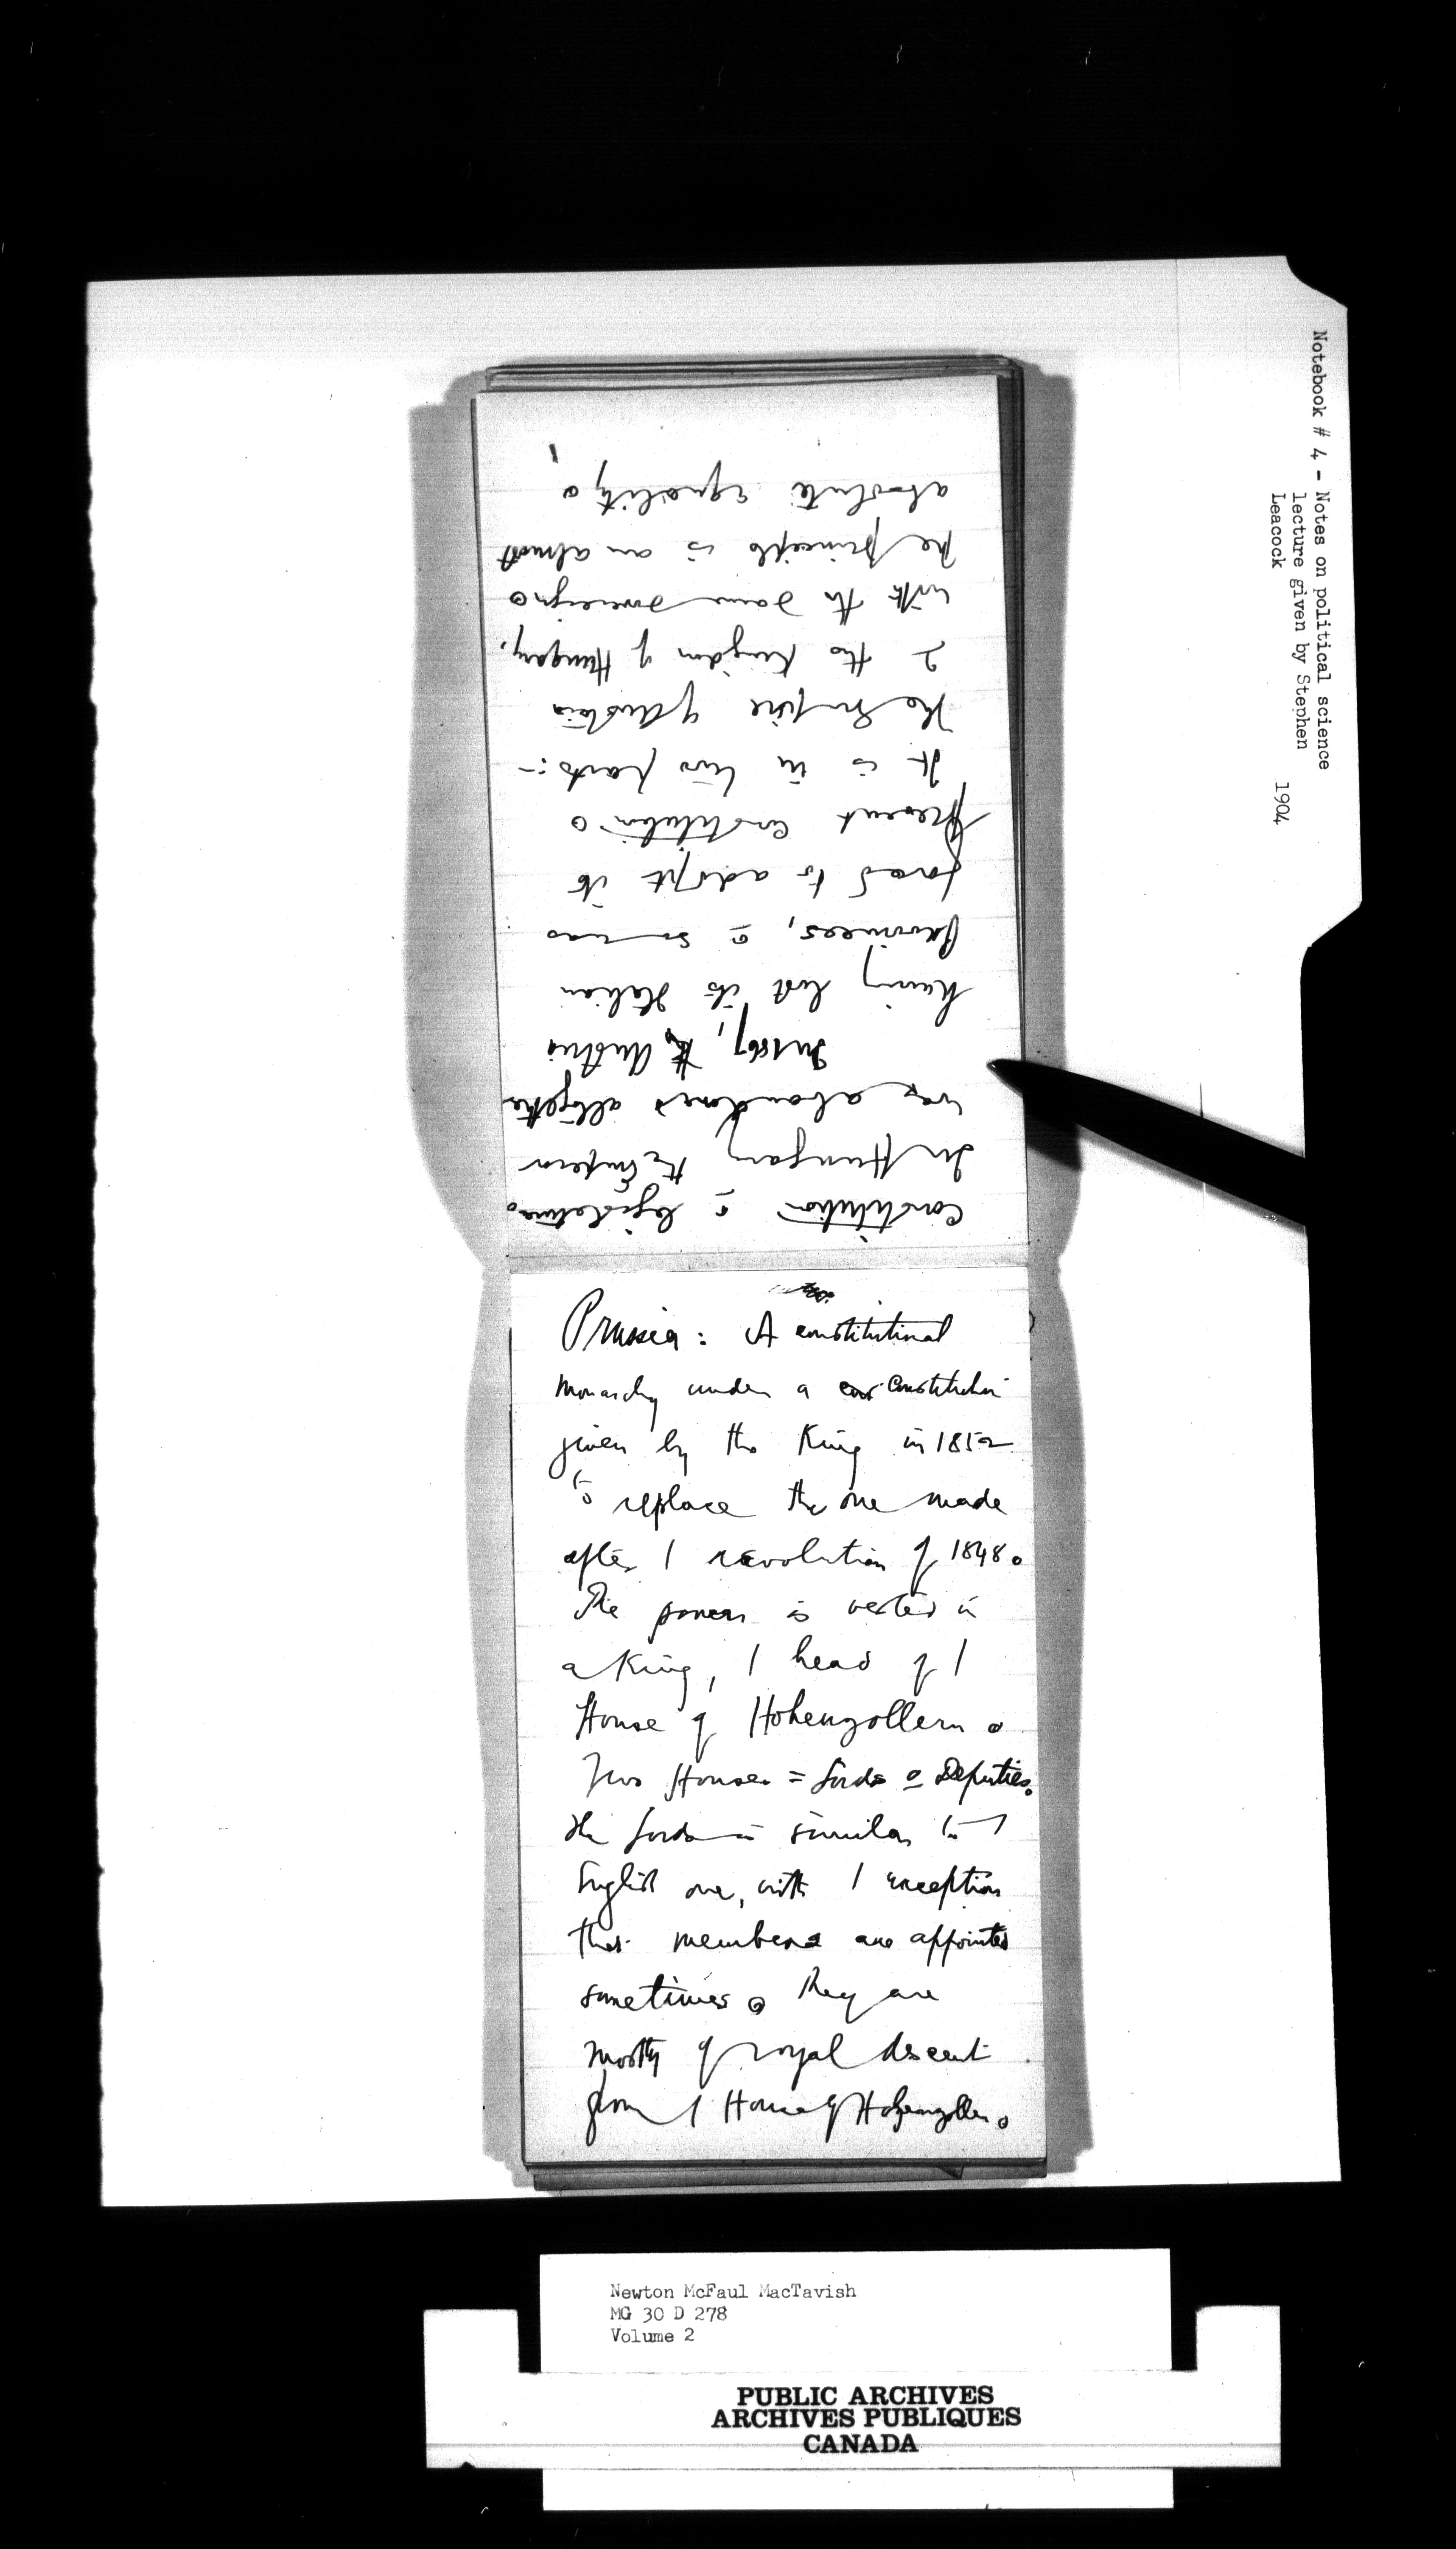 Notebook # 4 - Notes on political science
lecture given by Stephen
Leacock 1904
Constitution & legislature.
In Hungary the Emperor
was abandoned altogether
In 1867, the Austria
having lost its Italian
Provinces, & so was
forced to adopt its
present constitution.
It is in two parts:-
The Empire of Austria
& the Kingdom of Hungary,
with the same sovereign.
The principle is an almost
absolute equality.
Prussia: A constitutional
monarchy under a constitution
given by the King in 1852
to replace the one made
after / revolution of 1848.
The power is vested in
a King, / head of /
House of Hohenzollern.
Two Houses = Lords & Deputies.
The Lords is similar to /
English one, with / exception
that members are appointed
sometimes. They are
mostly of royal descent
from / House of Hohenzollern.
Newton McFaul MacTavish
MG 30 D 278
Volume 2
PUBLIC ARCHIVES
ARCHIVES PUBLIQUES
CANADA